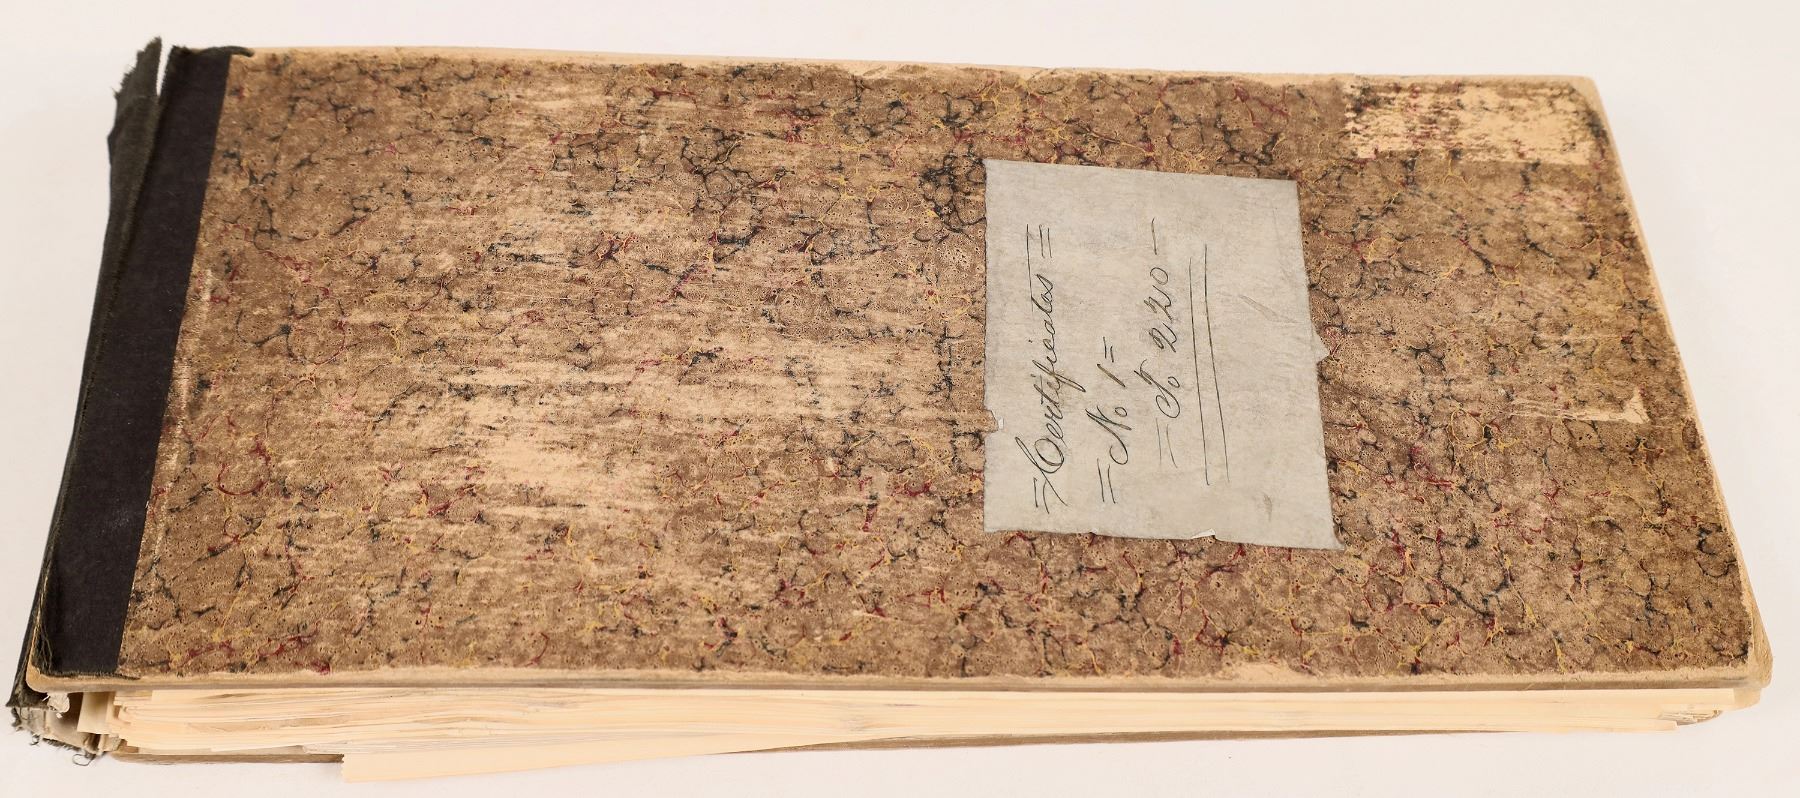 =Certificates=
=No 1=
=To 220=